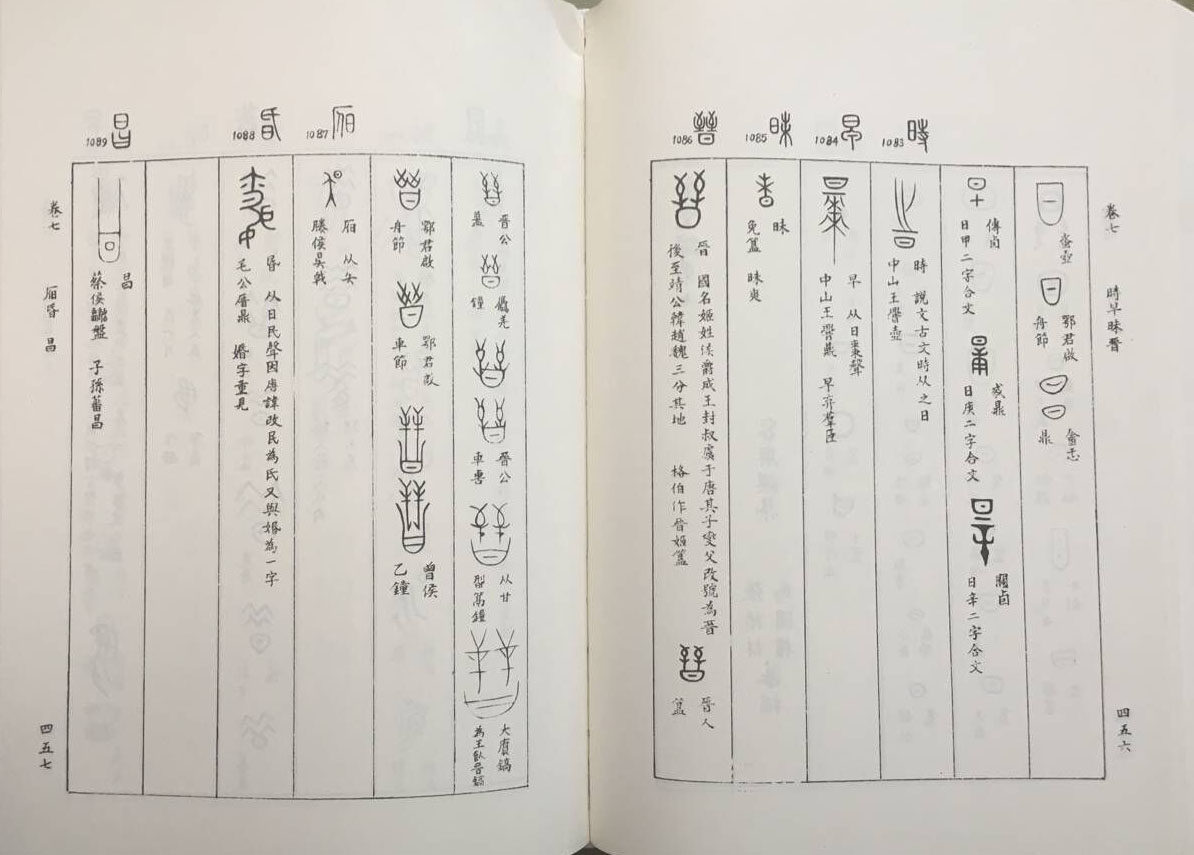 卷七　時早昧晉
四五六
時 1083
早 1084
昧 1085
晉 1086
壺
鄂君啟
舟節
盦忎
鼎
傳卣
日甲二字合文
鼎
日庚二字合文
卣
日辛二字合文
時　說文古文時从之日
中山王壺
早　从日棗聲
中山王鼎　早弃羣臣
昧
免簋　昧爽
晉　國名姬姓侯爵成王封叔虞于唐其子燮父改號為晉
後至靖公韓趙魏三分其地　格伯作晉姬簋
晉人
簋
1087
昏 1088
昌 1089
晉公
𥂴
鐘
晉公
車軎
从甘
鐘
大𠪚鎬
為王晉鎬
鄂君啟
舟節
鄂君啟
車節
曾侯
乙鐘
滕侯昊戟
昏　从日民聲因唐諱改民為氏又與婚為一字
毛公厝鼎　婚字重見
昌
蔡侯盤　子孫蕃昌
卷七　昏　昌
四五七